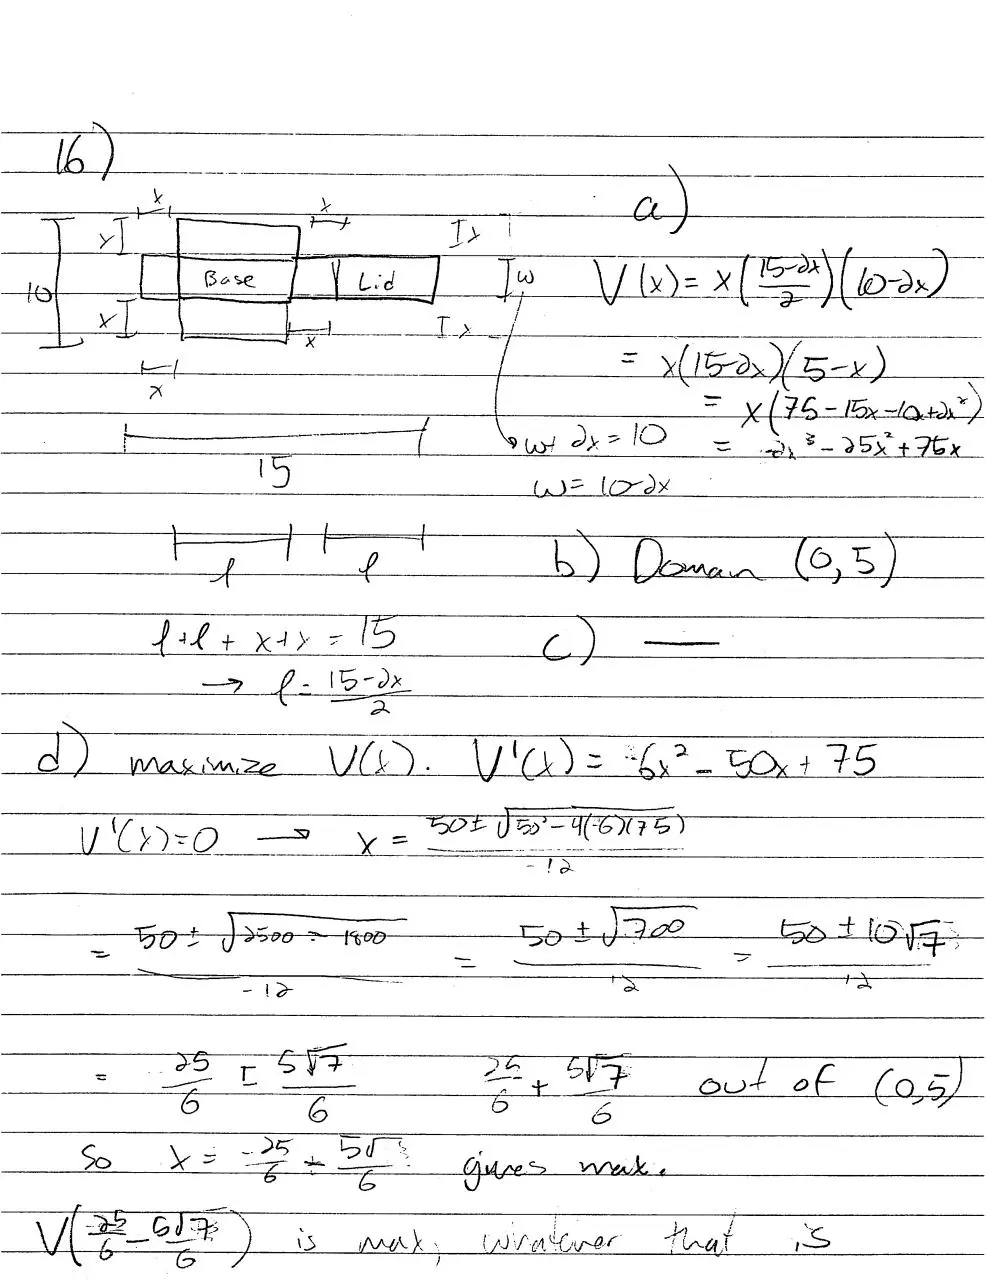 16)
a)
x x
x x
10 Base Lid w
x x
x x
V(x) = x((15-2x)/2)(10-2x)
= x(15-2x)(5-x)
= x(75-15x-10x+2x²)
= 2x³-25x²+75x
15
w+2x=10
w=10-2x
l l
b) Domain (0,5)
l+l+x+x=15
→ l = (15-2x)/2
c) —
d) maximize V(x). V'(x) = 6x² - 50x + 75
V'(x)=0 → x = (50±√(50²-4(-6)(75)))/-12
= (50±√(2500-1800))/-12 = (50±√700)/12 = (50±10√7)/12
= 25/6 ± 5√7/6 25/6 + 5√7/6 out of (0,5)
so x = -25/6 ÷ 5√/6 gives max.
V(25/6 - 5√7/6) is max, whatever that is